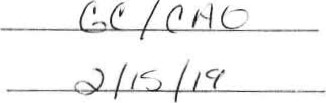 GC/CAO
2/15/19